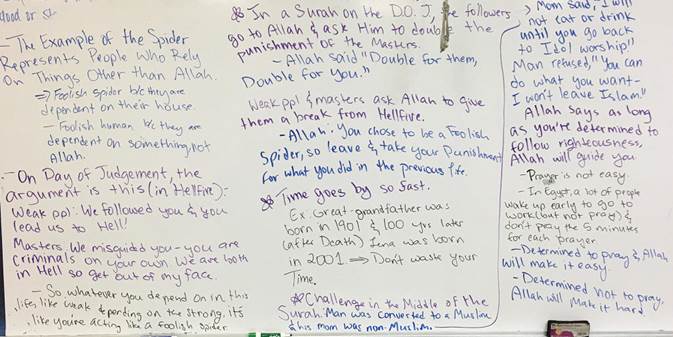 - The Example of the Spider
Represents People Who Rely
On Things Other than Allah.
⇒ Foolish spider b/c they are
dependent on their house.
- Foolish human b/c they are
dependent on something, not
Allah.
- On Day of Judgement, the
argument is this (in Hellfire):
Weak ppl: We followed you & you
lead us to Hell!
Masters: We misguided you - you are
criminals on your own. We are both
in Hell so get out of my face.
- So whatever you depend on in this
life, like weak depending on the strong, it's
like you're acting like a foolish spider
In a Surah on the D.O.J, the followers
go to Allah & ask Him to double the
punishment of the Masters.
- Allah said "Double for them,
Double for you."
Weak ppl & masters ask Allah to give
them a break from Hellfire.
- Allah: You chose to be a Foolish
Spider, so leave & take your Punishment
for what you did in the previous life.
Time goes by so fast.
Ex. Great-grandfather was
born in 1901 & 100 yrs later
(after Death) Lena was born
in 2001 ⇒ Don't waste your
Time.
Challenge in the Middle of the
Surah: Man was converted to a Muslim
& his mom was non-Muslim.
Mom said "I will
not eat or drink
until you go back
to Idol worship!"
Man refused, "You can
do what you want -
I won't leave Islam."
Allah says as long
as you're determined to
follow righteousness,
Allah will guide you
- Prayer is not easy.
- In Egypt, a lot of people
wake up early to go to
work (but not pray) &
don't pray the 5 minutes
for each prayer.
- Determined to pray & Allah
will make it easy.
- Determined not to pray,
Allah will make it hard